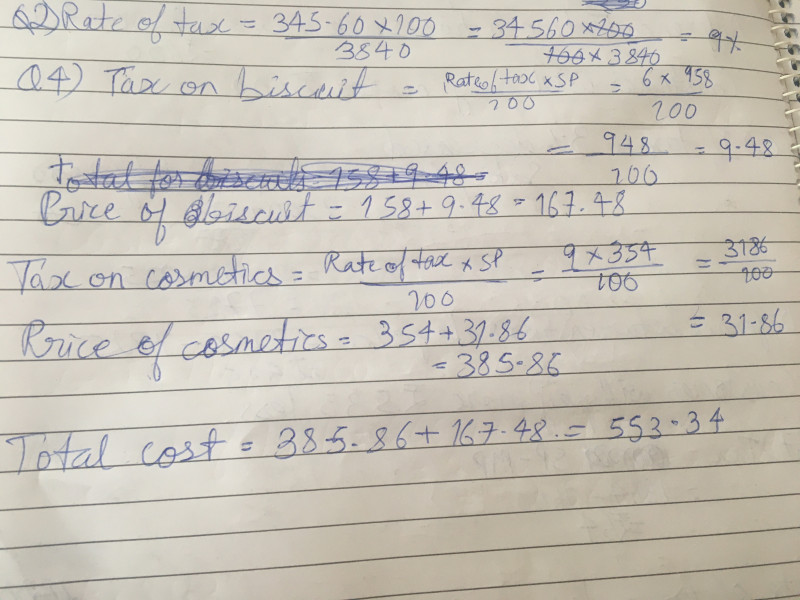 Q2) Rate of tax = 345.60 × 100 / 3840 = 34560 × 100 / 100 × 3840 = 9%
Q4) Tax on biscuit = Rate of tax × SP / 100 = 6 × 958 / 100
= 948 / 100 = 9.48
Total for biscuits = 158 + 9.48 =
Price of biscuit = 158 + 9.48 = 167.48
Tax on cosmetics = Rate of tax × SP / 100 = 9 × 354 / 100 = 3186 / 100
= 31.86
Price of cosmetics = 354 + 31.86
= 385.86
Total cost = 385.86 + 167.48 = 553.34